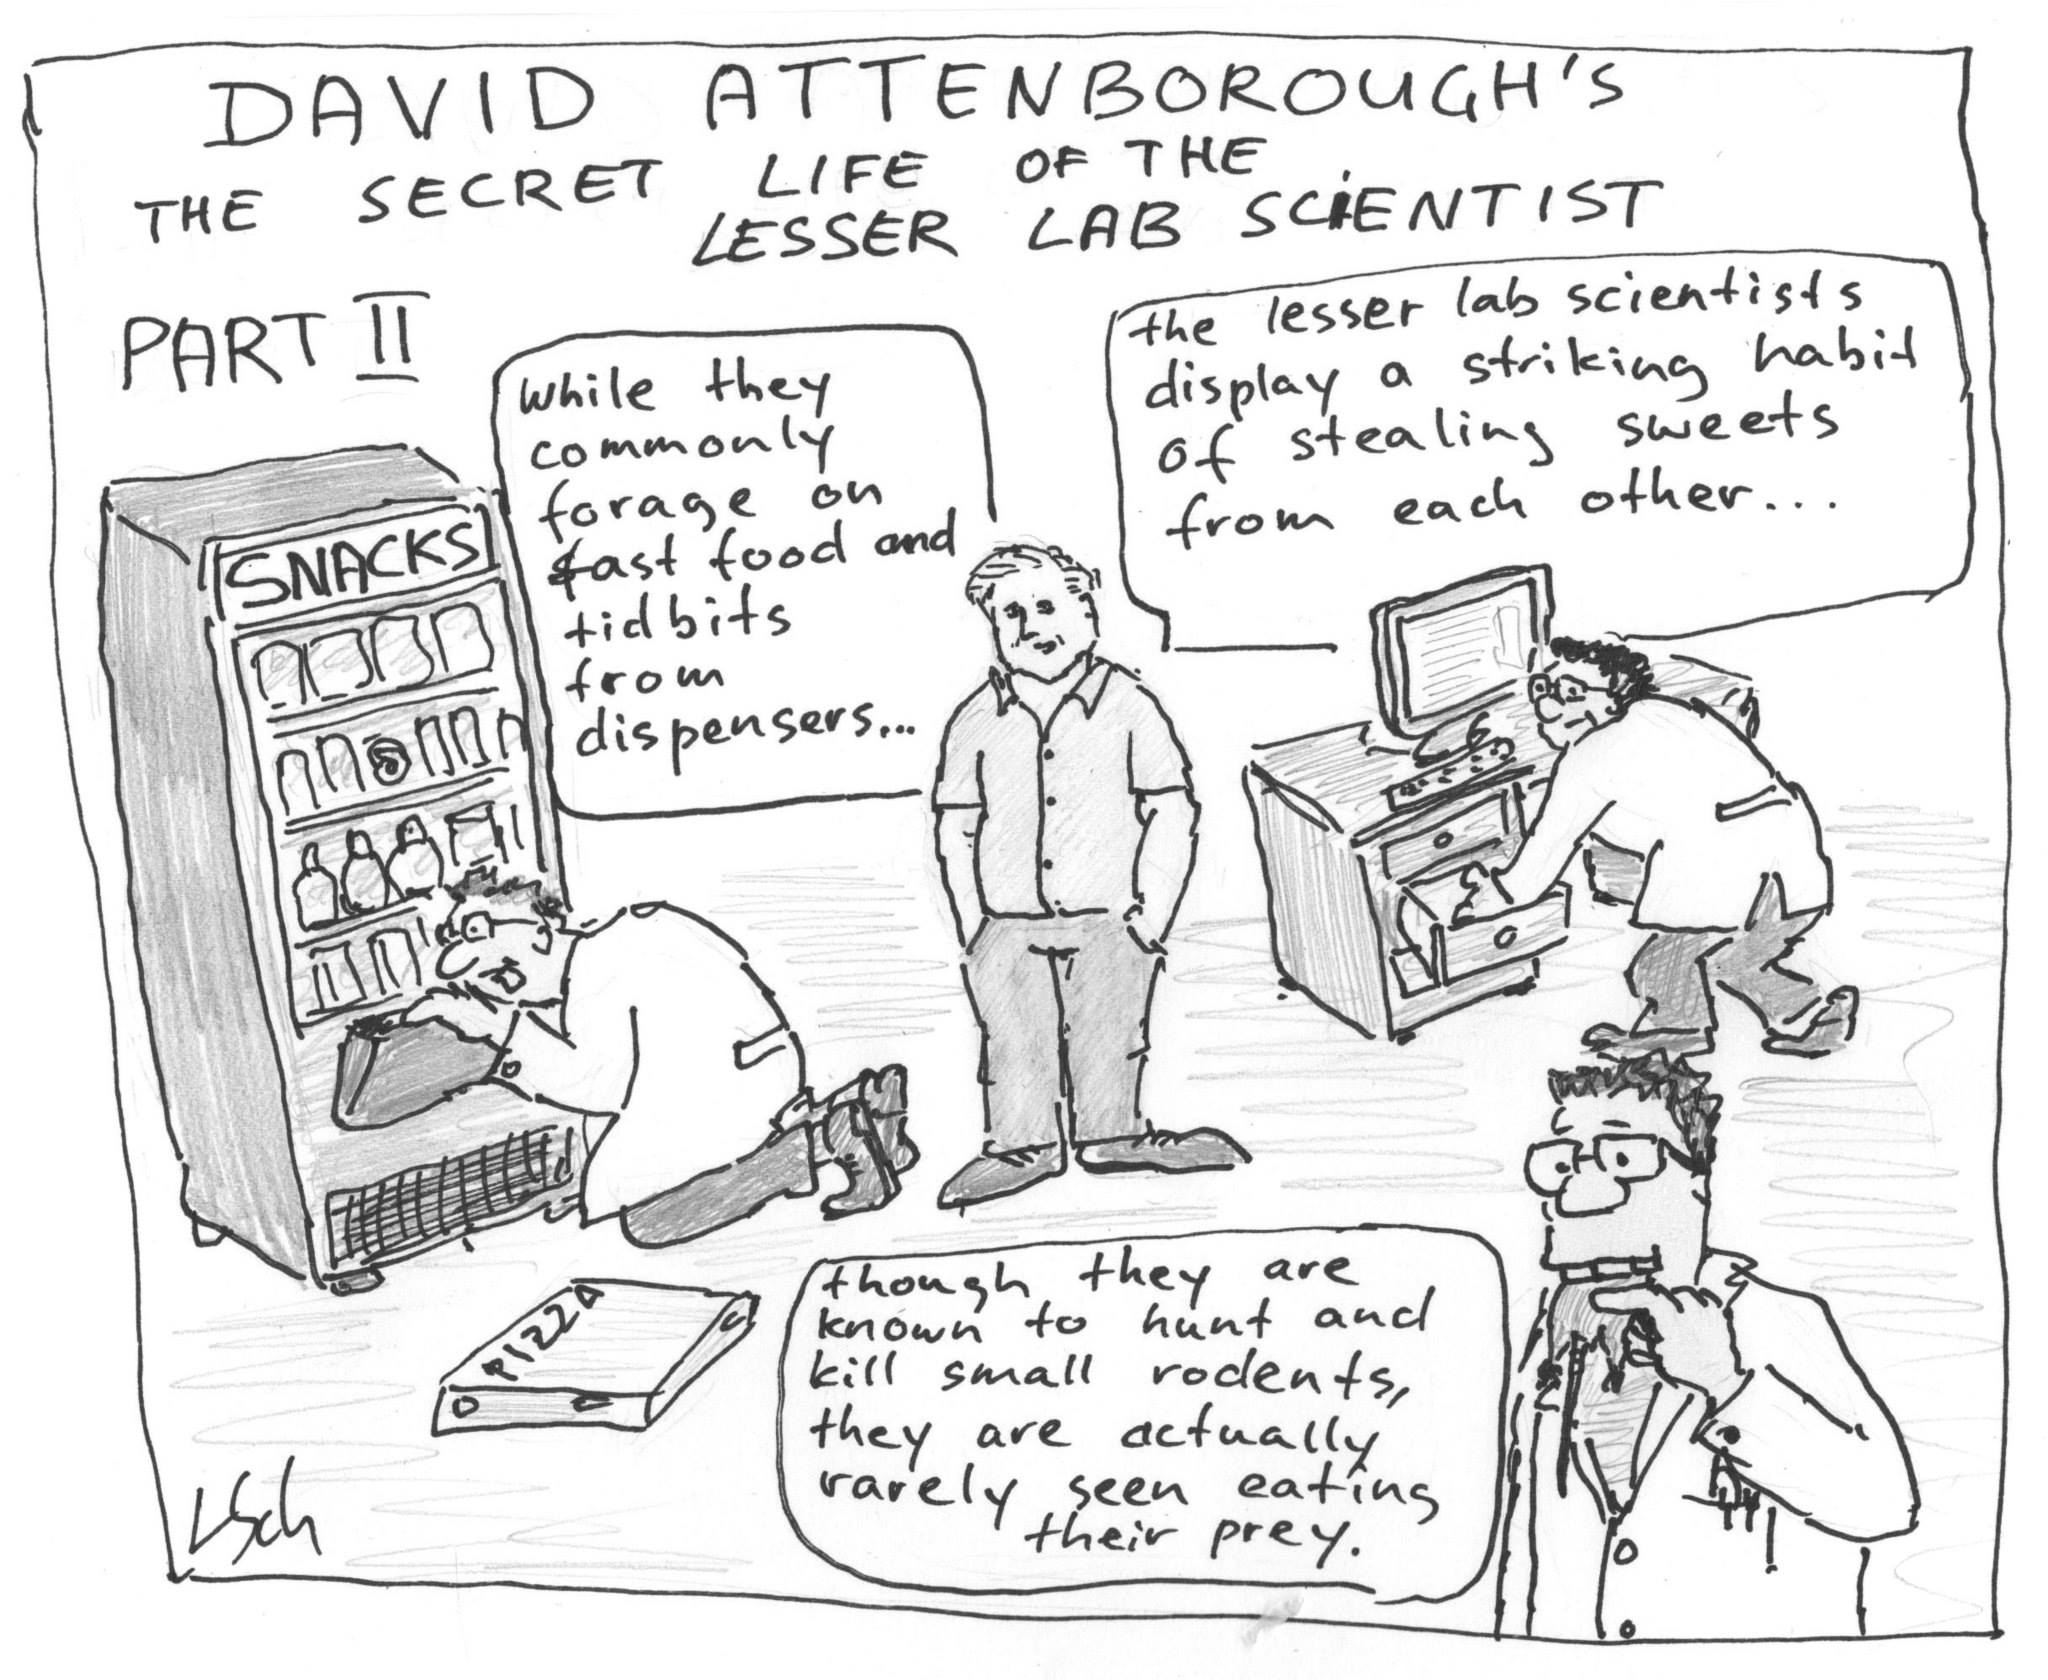 DAVID ATTENBOROUGH'S
THE SECRET LIFE OF THE
LESSER LAB SCIENTIST
PART II
while they
commonly
forage on
fast food and
tidbits
from
dispensers...
the lesser lab scientists
display a striking habit
of stealing sweets
from each other...
SNACKS
PIZZA
though they are
known to hunt and
kill small rodents,
they are actually
rarely seen eating
their prey.